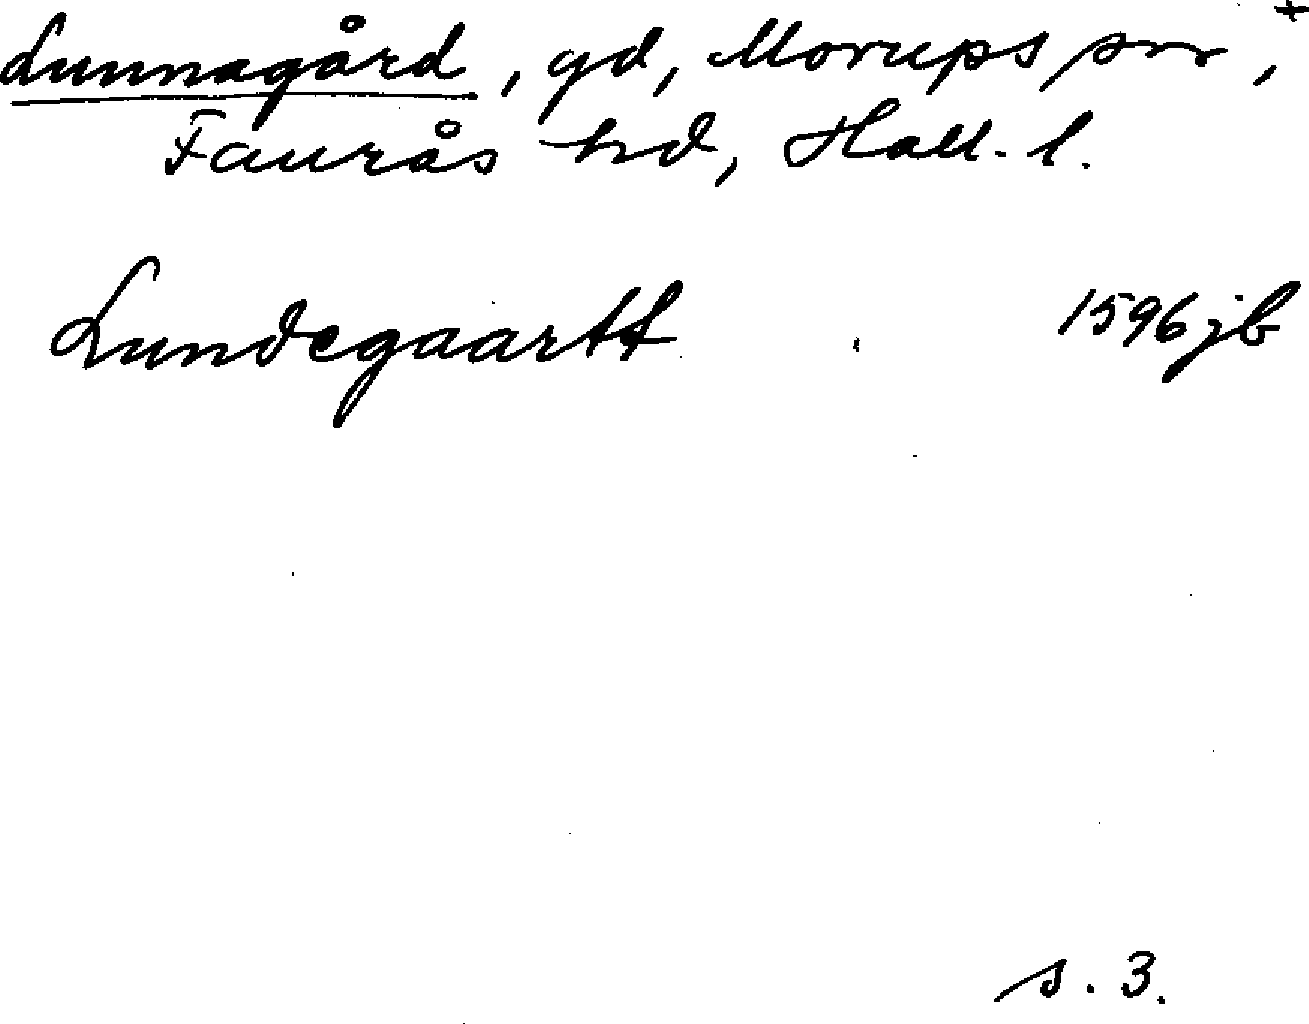 Lunnagård, gd, Morups sn, +
Faurås hd, Hall. l.
Lundegaartt 1596 jb
s. 3.